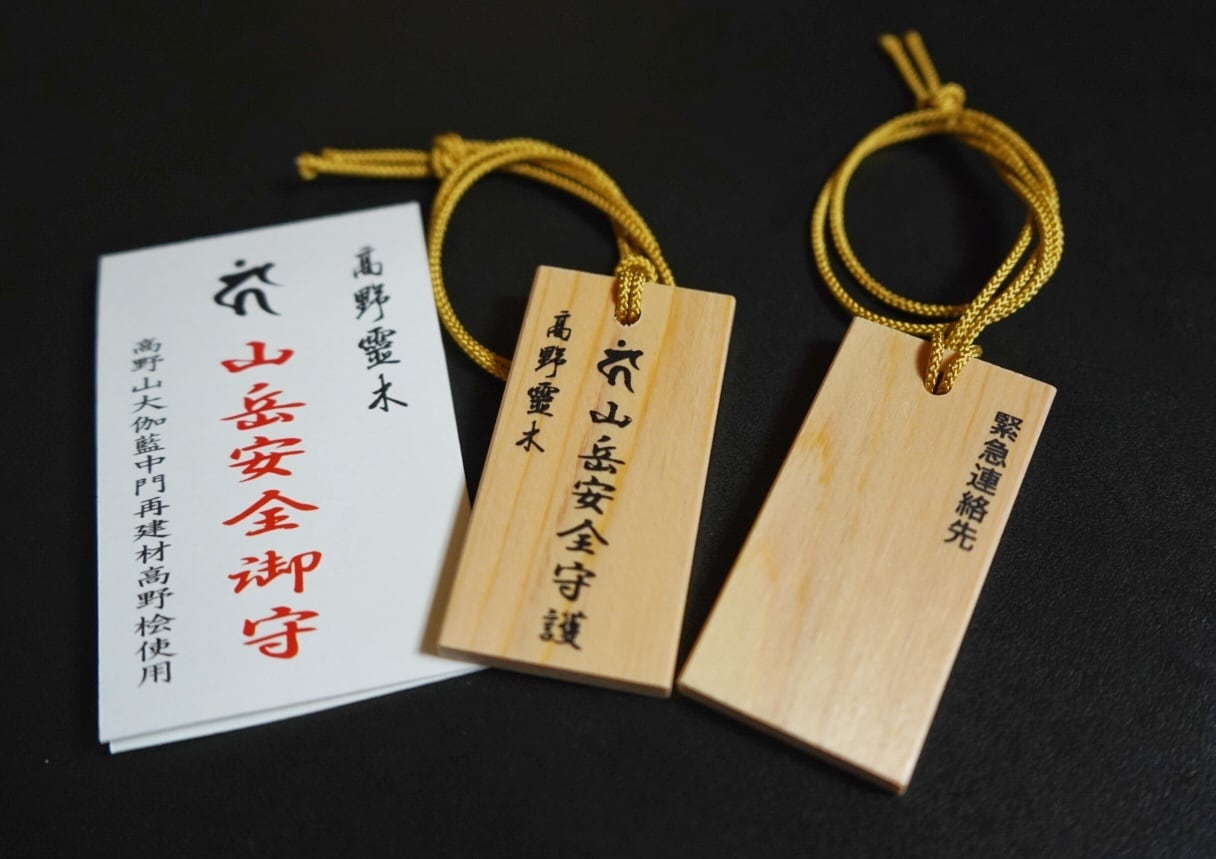 高野霊木
山岳安全御守
高野山大伽藍中門再建材高野桧使用
山岳安全守護
高野霊木
緊急連絡先